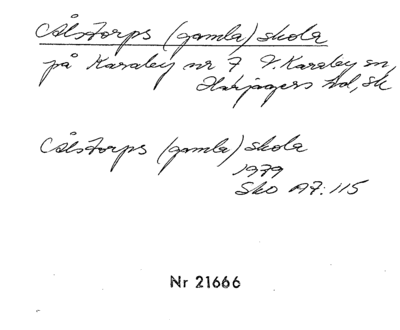 Ålstorps (gamla) skola
på Karaby nr 7 V. Karaby sn,
Harjagers hd, Sk
Ålstorps (gamla) skola
1979
Sko A7:115
Nr 21666